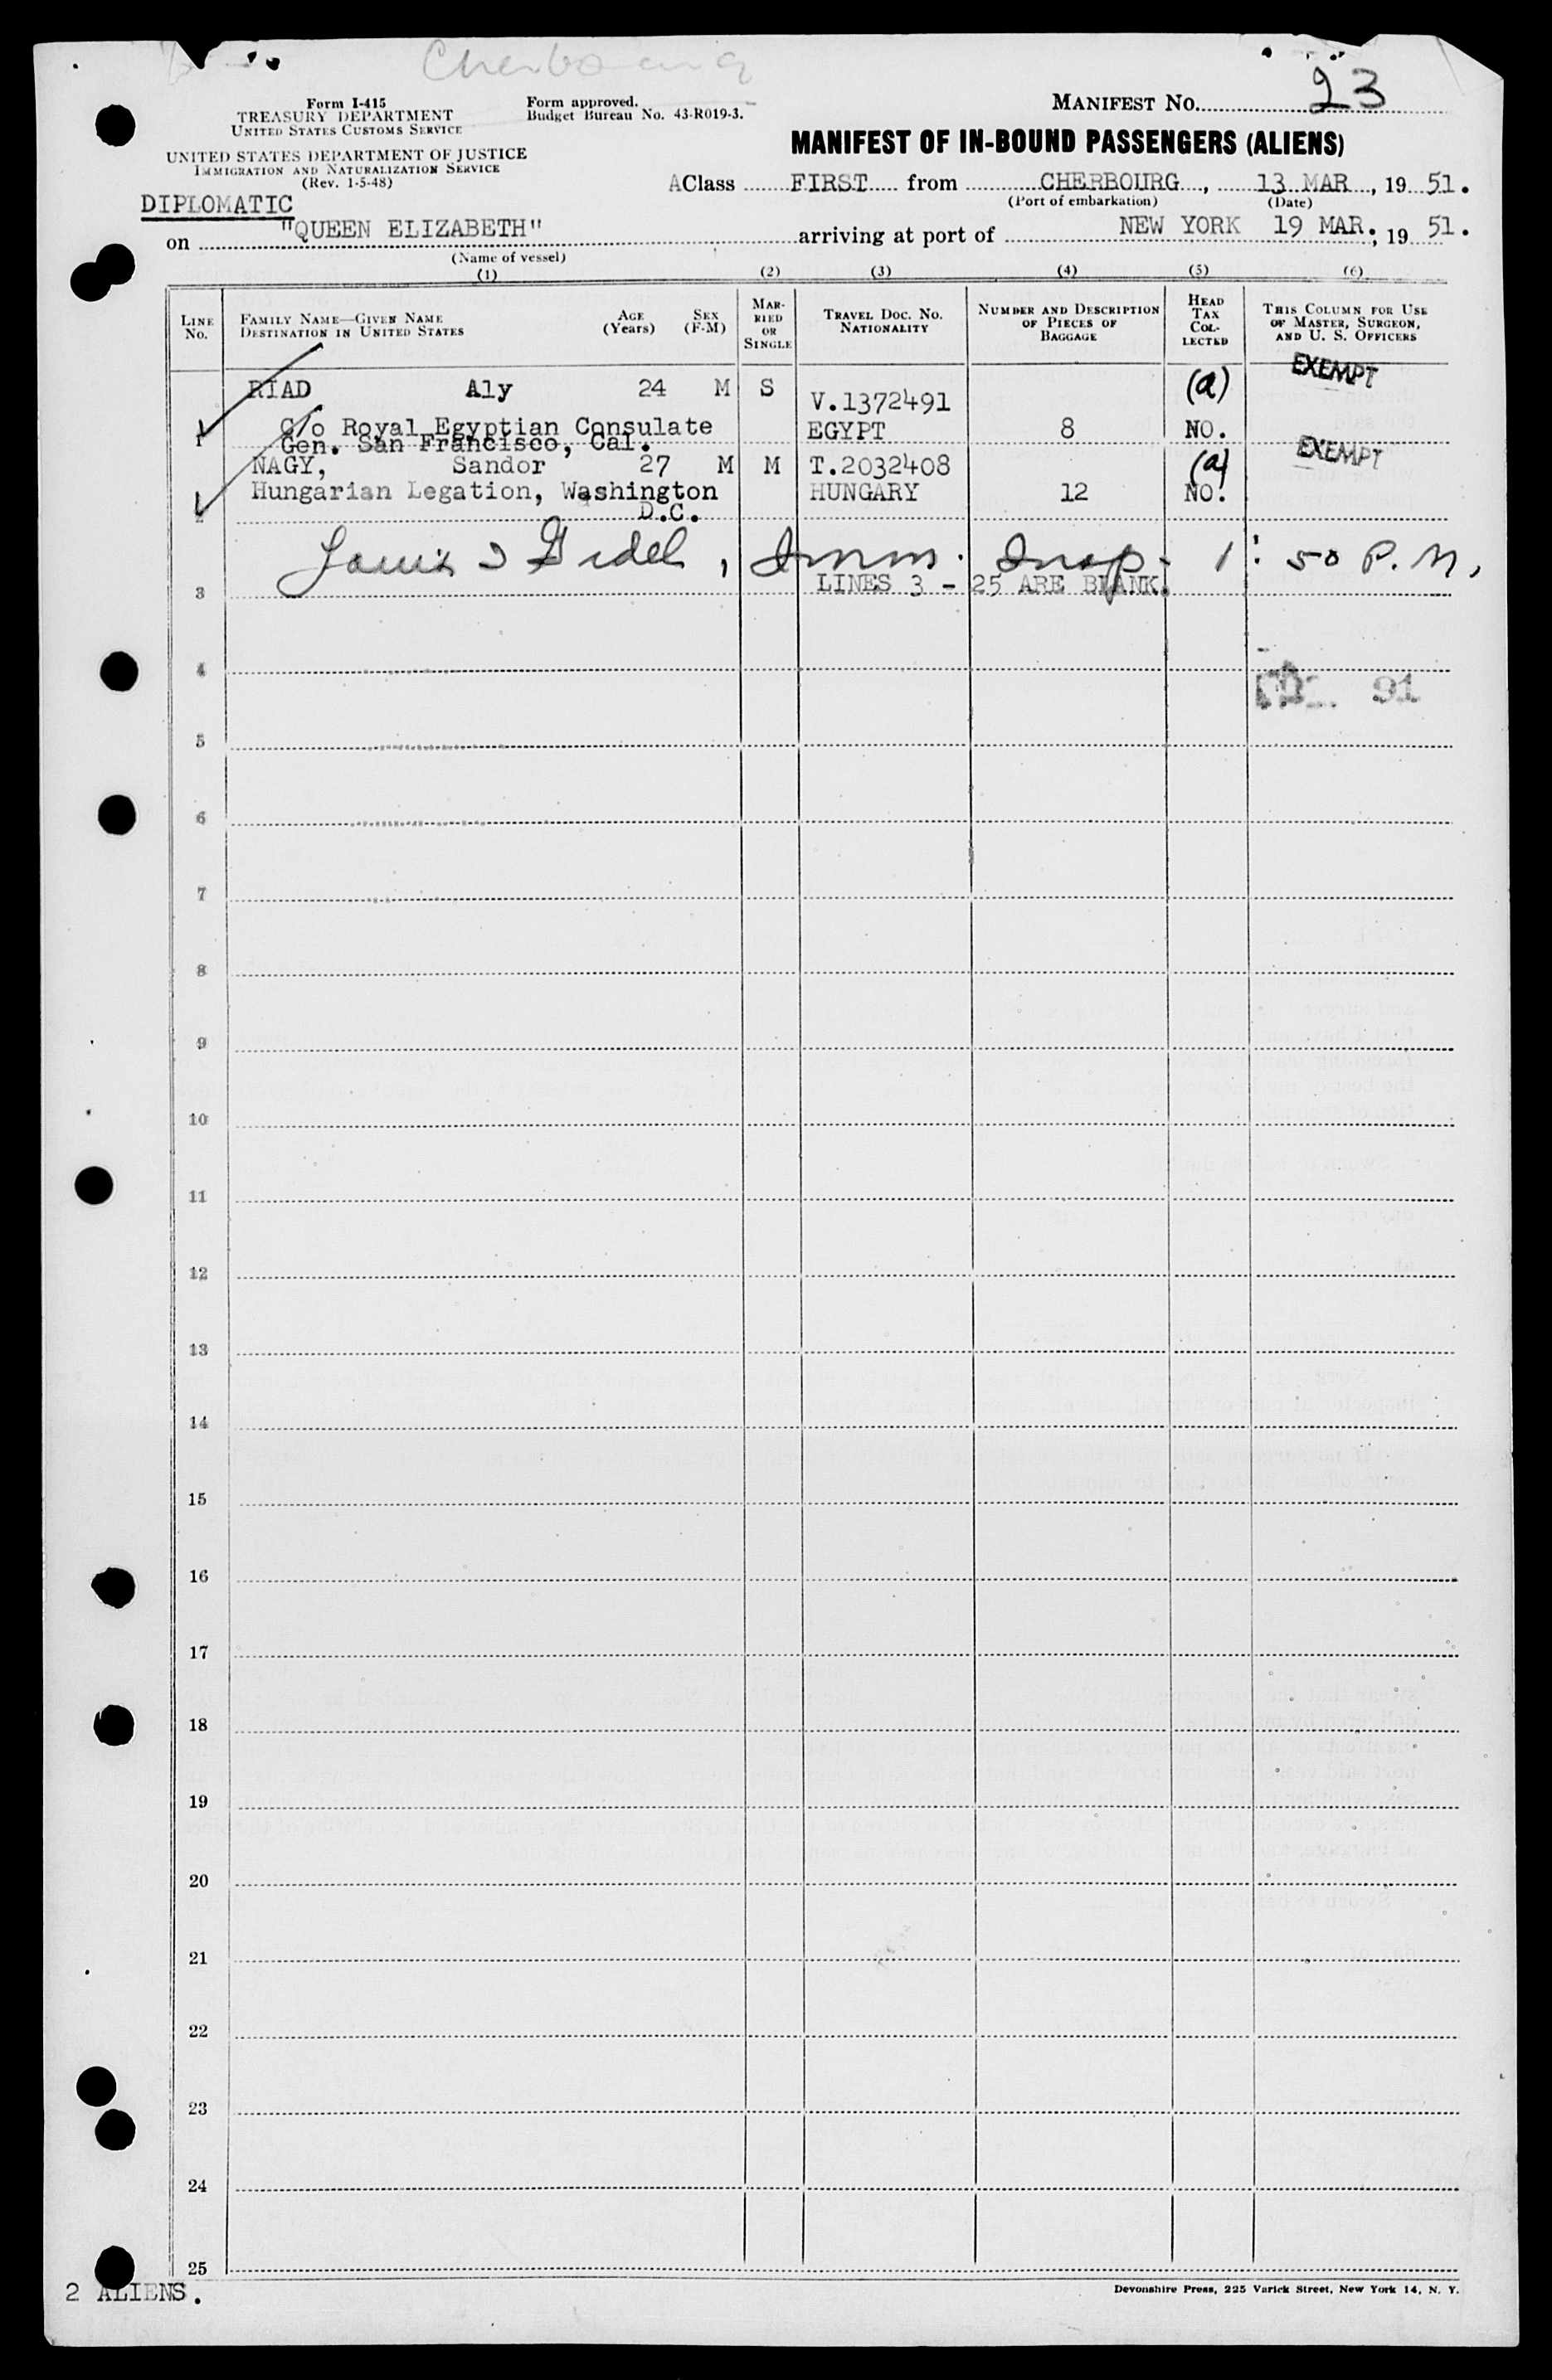 Cherbourg
Form I-415
TREASURY DEPARTMENT
UNITED STATES CUSTOMS SERVICE
UNITED STATES DEPARTMENT OF JUSTICE
IMMIGRATION AND NATURALIZATION SERVICE
(Rev. 1-5-48)
Form approved.
Budget Bureau No. 43-R019-3.
MANIFEST NO. 23
MANIFEST OF IN-BOUND PASSENGERS (ALIENS)
AClass FIRST from CHERBOURG, 13 MAR, 19 51.
(Port of embarkation) (Date)
DIPLOMATIC
on "QUEEN ELIZABETH" arriving at port of NEW YORK 19 MAR., 19 51.
(Name of vessel)
(1) (2) (3) (4) (5) (6)
LINE NO.
FAMILY NAME—GIVEN NAME
DESTINATION IN UNITED STATES
AGE (Years)
SEX (F-M)
MARRIED OR SINGLE
TRAVEL DOC. NO. NATIONALITY
NUMBER AND DESCRIPTION OF PIECES OF BAGGAGE
HEAD TAX COLLECTED
THIS COLUMN FOR USE OF MASTER, SURGEON, AND U. S. OFFICERS
RIAD Aly 24 M S V.1372491 (a) EXEMPT
1 C/o Royal Egyptian Consulate EGYPT 8 NO.
Gen. San Francisco, Cal.
NAGY, Sandor 27 M M T.2032408 (a) EXEMPT
2 Hungarian Legation, Washington HUNGARY 12 NO.
D.C.
Louis Imm. Insp. 1:50 P.M.
3 LINES 3 - 25 ARE BLANK.
4
91
5
6
7
8
9
10
11
12
13
14
15
16
17
18
19
20
21
22
23
24
25
2 ALIENS.
Devonshire Press, 225 Varick Street, New York 14, N. Y.